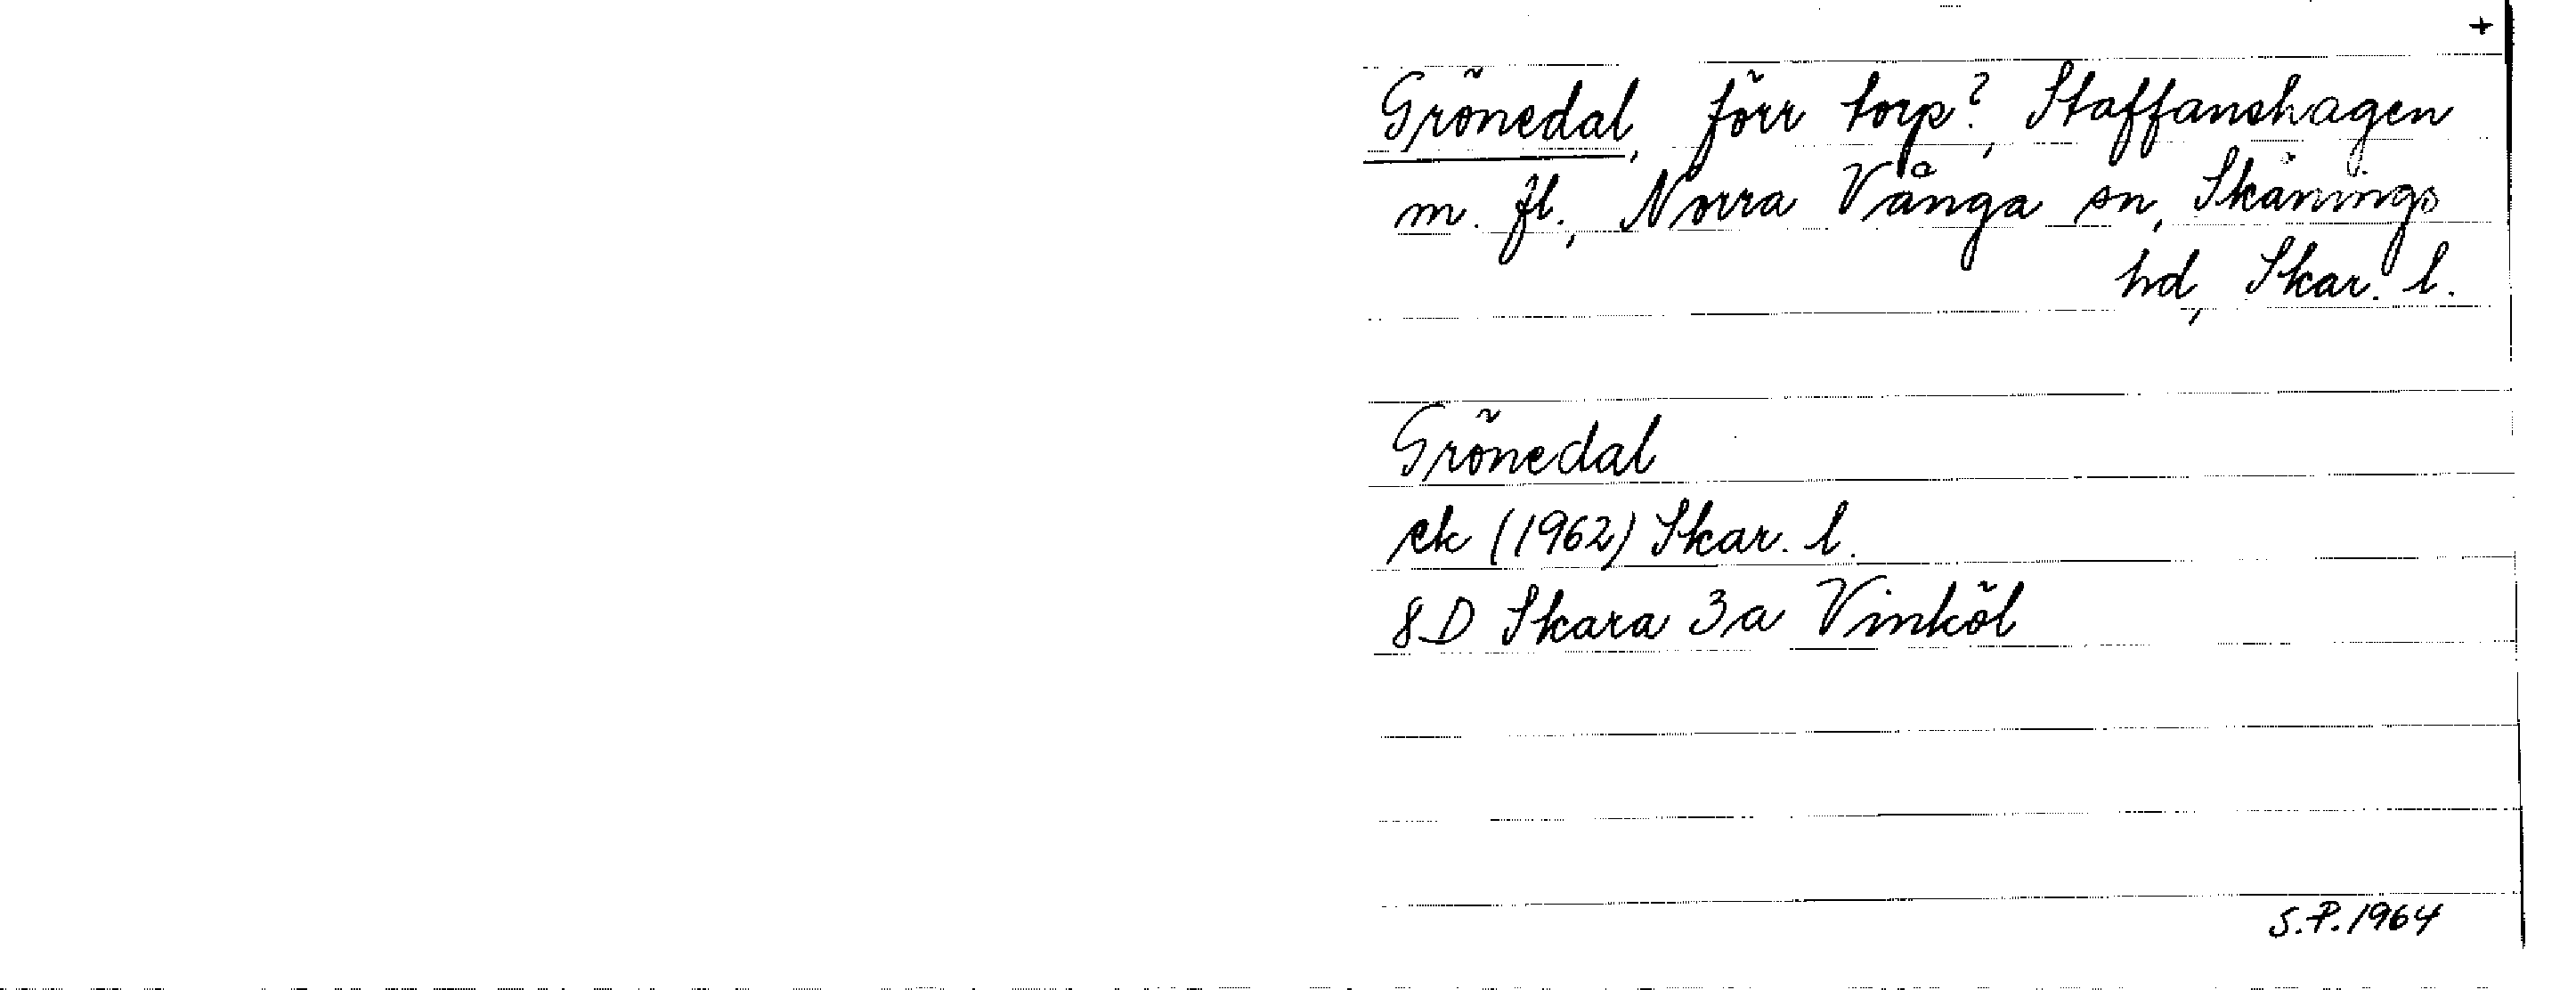 +
Grönedal, förr torp?, Staffanshagen
m. fl., Norra Vånga sn, Skånings
hd, Skar. l.
Grönedal
ek (1962) Skar. l.
8D Skara 3a Vinköl
S.P. 1964